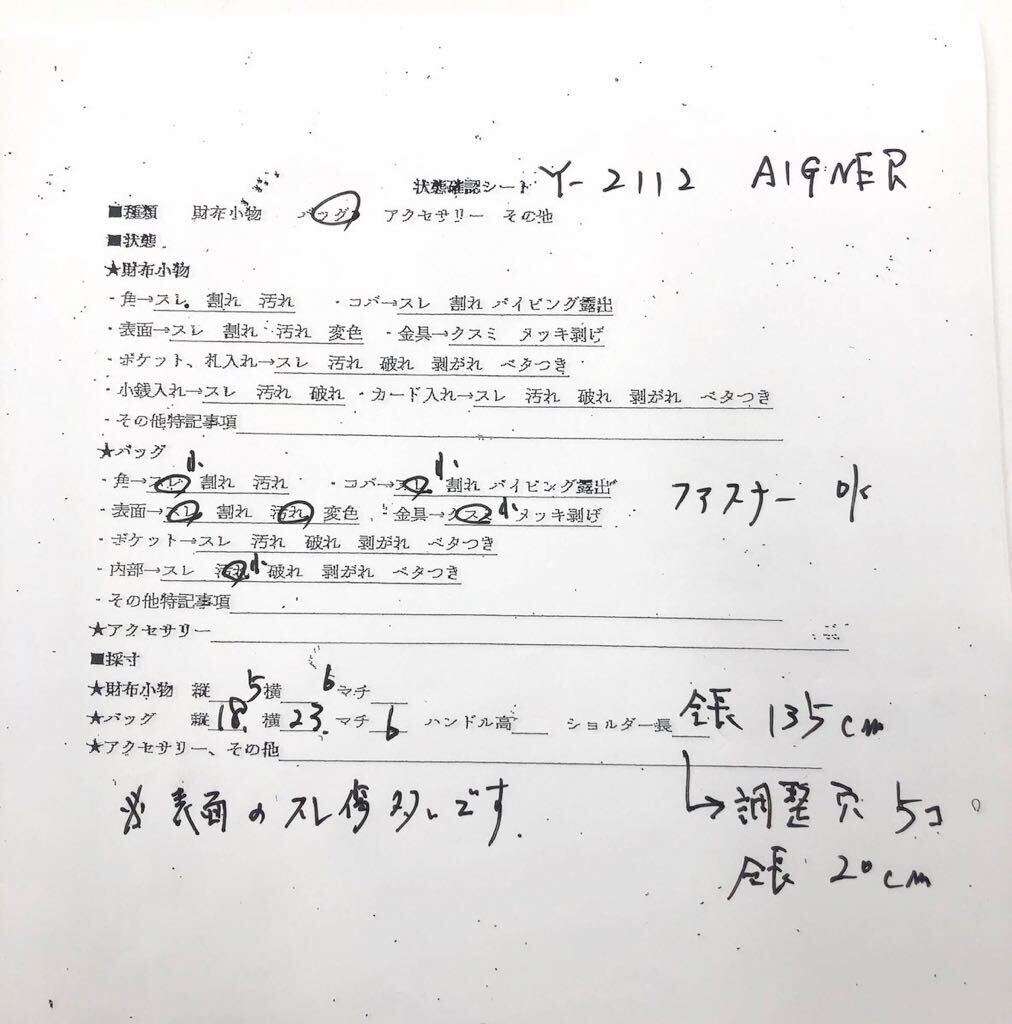 状態確認シート Y-2112 AIGNER
■種類 財布小物 バッグ アクセサリー その他
■状態
★財布小物
・角→スレ 割れ 汚れ ・コバ→スレ 割れ パイピング露出
・表面→スレ 割れ 汚れ 変色 ・金具→クスミ メッキ剥げ
・ポケット、札入れ→スレ 汚れ 破れ 剥がれ ベタつき
・小銭入れ→スレ 汚れ 破れ ・カード入れ→スレ 汚れ 破れ 剥がれ ベタつき
・その他特記事項
★バッグ
・角→スレ 小 割れ 汚れ ・コバ→スレ 小 割れ パイピング露出
・表面→スレ 割れ 汚れ 変色 ・金具→クスミ 小 メッキ剥げ
ファスナー ok
・ポケット→スレ 汚れ 破れ 剥がれ ベタつき
・内部→スレ 汚れ 小 破れ 剥がれ ベタつき
・その他特記事項
★アクセサリー
■採寸
★財布小物 縦 5 横 6 マチ
★バッグ 縦 18 横 23 マチ 6 ハンドル高 ショルダー長 全長 135cm
★アクセサリー、その他
→調整穴 5コ
※表面のスレ傷多いです.
全長 20cm